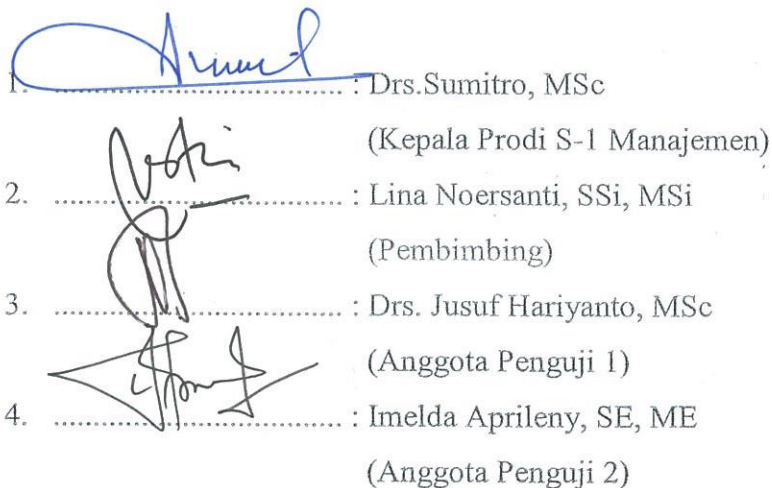 1. .......................................... : Drs.Sumitro, MSc
(Kepala Prodi S-1 Manajemen)
2. .......................................... : Lina Noersanti, SSi, MSi
(Pembimbing)
3. .......................................... : Drs. Jusuf Hariyanto, MSc
(Anggota Penguji 1)
4. .......................................... : Imelda Aprileny, SE, ME
(Anggota Penguji 2)